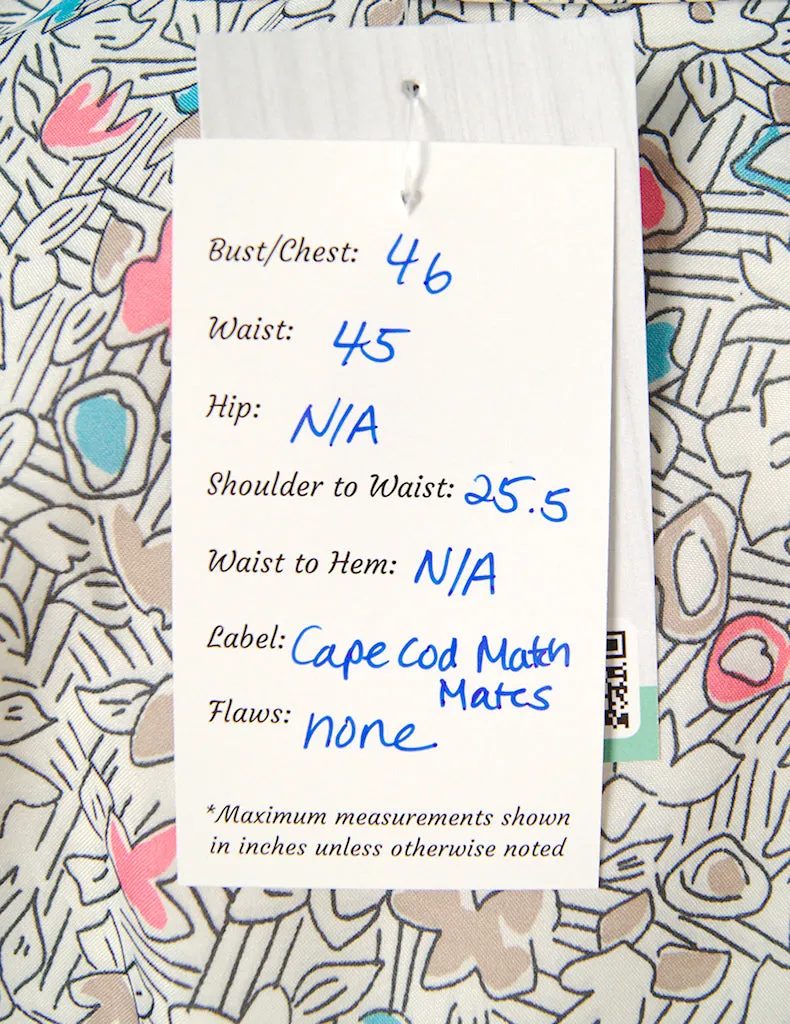 Bust/Chest: 46
Waist: 45
Hip: N/A
Shoulder to Waist: 25.5
Waist to Hem: N/A
Label: Cape Cod Match
Mates
Flaws: none
*Maximum measurements shown
in inches unless otherwise noted